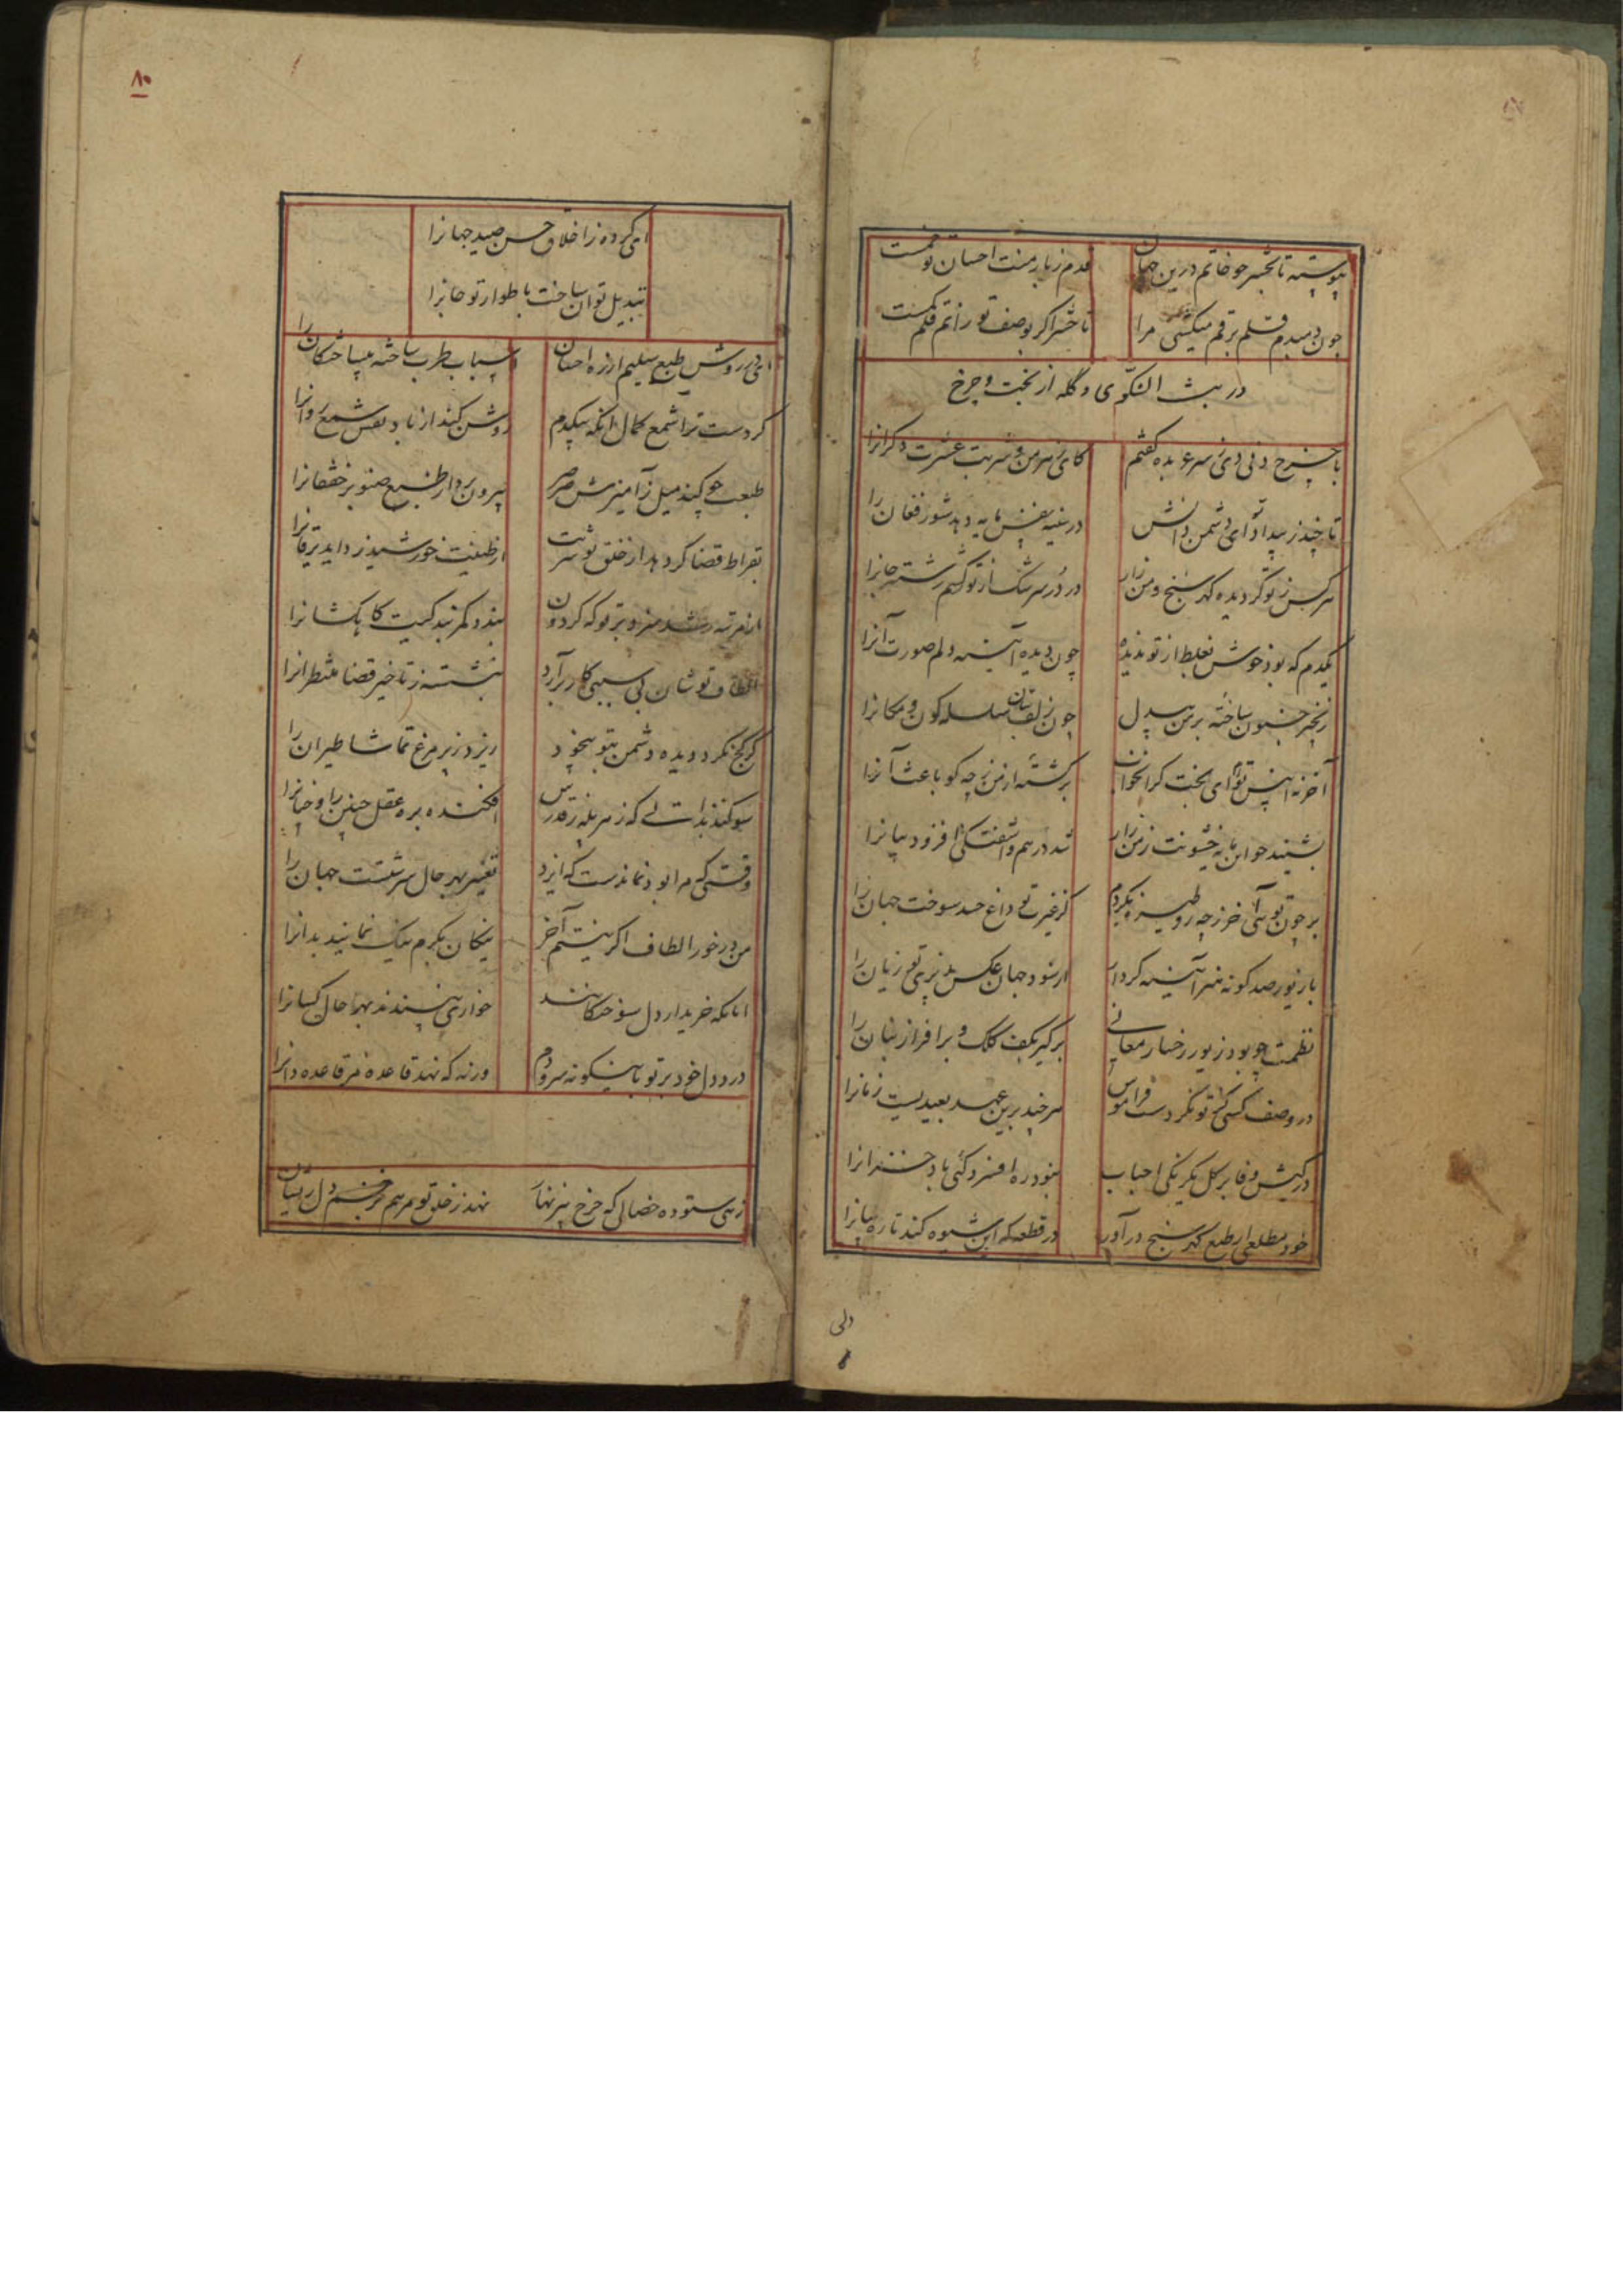 پیوسته تا بحشر چو خاتم درین جهان
قدم زبار منت احسان تو خمست
چون دمبدم قلم برقم میکشی مرا
تا حشر اگر بوصف تو رانم قلم کمست
در بث الشکوی و گله از بخت و چرخ
با چرخ دنی دی ز سر عربده گفتم
کای زهر من و شربت عشرت دکرانرا
تا چند ز بیداد تو ای دشمن دانش
در سینه نفس مایه دهد شور فغان را
سرکس ز تو گردیده گهر سنج و من زار
در در سرشک از تو کشم رشته جانرا
یکدم که بود خوش بغلط از تو ندیده
چون دیده آینه دلم صورت آنرا
زنجیر جنون ساخته بر من بیدل
چون زلف بتان سلسله کون و مکانرا
آخر نه انیس توام ای بخت کرانخواب
برگشته از من ز چه گو باعث آنرا
بشنید چو این مایه خشونت ز من زار
شد درهم و آشفتگی افزود بیانرا
بر چون تویی آخر ز چه رو طیره نگردم
کز غیرت تو داغ حسد سوخت جهان را
با زیور صد گونه هنر آینه کردار
از سود جهان عکس پذیری تو زیان را
نظمت چو بود زیور رخسار معانی
برگیر بکف کلک و برافراز بنان را
در وصف کسی کش تو نکردست فراموش
هر چند برین عهد بعیدیست زمانرا
در کیش وفا بر گل یکرنگی احباب
ننمود ره افسردگی باد خزانرا
خود مطلعی از طبع گهر سنج درآور
در قطعه که این شیوه کند تازه بیانرا
ای کرده ز اخلاق حسن صید جهانرا
تبدیل توان ساخت باطوار تو جانرا
ای در روش طبع سلیم از ره احسان
اسباب طرب ساخته بیساختگان را
کردست ترا شمع کمال آنکه بیکدم
روشن کند از باد نفس شمع روانرا
طبعت چو کند میل ز آمیزش صرصر
بیرون برد از طبع صنوبر خفقانرا
بقراط قضا گر دهد از خلق تو شربت
از طینت خورشید زداید یرقانرا
از مرتبه رشد منزه بر تو که گردون
بندد کمر بندگیت کاهکشانرا
الطاف تو شان بی سببی کار برآرد
ننشسته ز تاخیر قضا منتظرانرا
گر کج نگرد دیده دشمن بتو بیخود
ریزد ز پر مرغ تماشا طیران را
سوگند بذات که ز سر پله قدرش
افکنده بره عقل چنین را و چنانرا
وقتی که مرا بود نماندست که ایزد
تغییر بهر حال سرشتست جهان را
من در خور الطاف اگر نیستم آخر
نیکان بکرم نیک نمایند بدانرا
آنانکه خریدار دل سوختگانند
خواری نپسندند بهر حال کسانرا
درد دل خود بر تو باینگونه سرودم
ورنه که نهد قاعده هر قاعده دانرا
زهی ستوده خصالی که چرخ پیر نهاد
نهد ز خلق تو مرهم بزخم دل ریشان